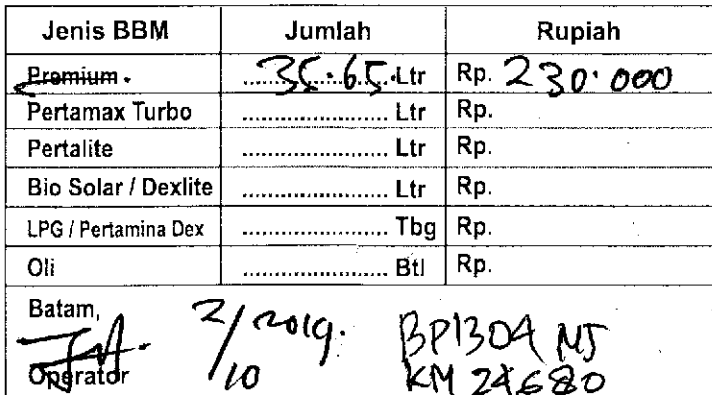 Jenis BBM Jumlah Rupiah
Premium. 35.65 Ltr Rp. 230.000
Pertamax Turbo ........................ Ltr Rp.
Pertalite ........................ Ltr Rp.
Bio Solar / Dexlite ........................ Ltr Rp.
LPG / Pertamina Dex ........................ Tbg Rp.
Oli ........................ Btl Rp.
Batam, 2/10 2019. BP1304 MJ
Operator KM 24680